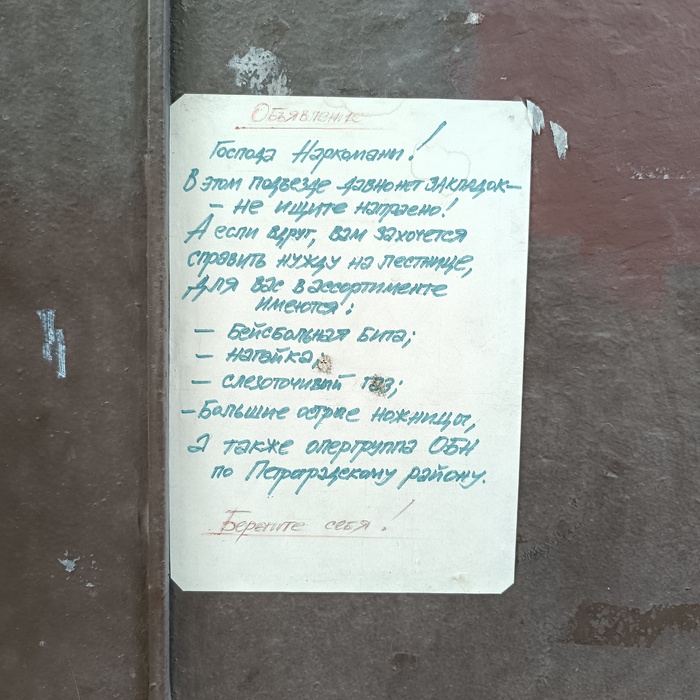 Объявление
Господа Наркоманы!
В этом подъезде давно нет закладок–
– не ищите напрасно!
А если вдруг, вам захочется
справить нужду на лестнице,
Для вас в ассортименте
имеются:
– Бейсбольная Бита;
– нагайка,
– слезоточивый газ;
– Большие острые ножницы,
а также опергруппа ОБН
по Петроградскому району.
Берегите себя!